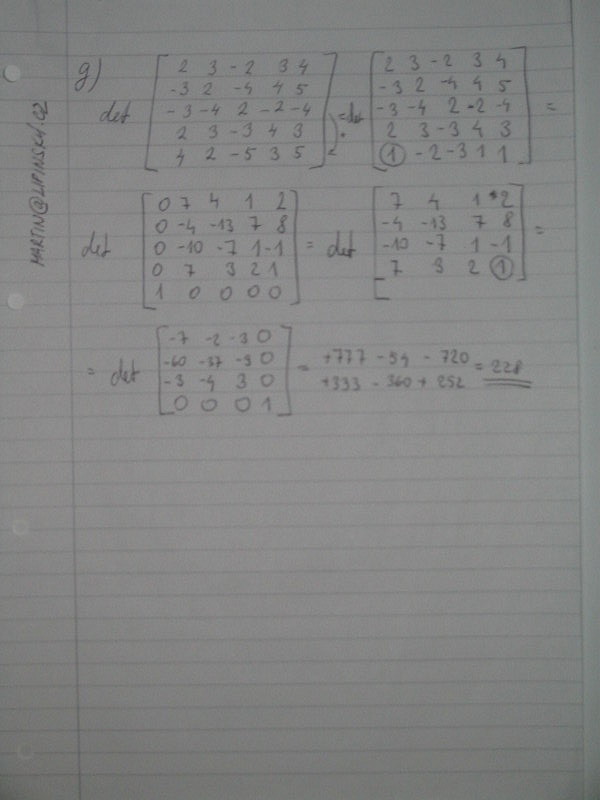 g) det [ 2 3 -2 3 4 ] = det [ 2 3 -2 3 4 ] =
[ -3 2 -4 4 5 ] [ -3 2 -4 4 5 ]
[ -3 -4 2 -2 -4 ] [ -3 -4 2 -2 -4 ]
[ 2 3 -3 4 3 ] [ 2 3 -3 4 3 ]
[ 4 2 -5 3 5 ] [ 1 -2 -3 1 1 ]
det [ 0 7 4 1 2 ] = det [ 7 4 1 2 ] =
[ 0 -4 -13 7 8 ] [ -4 -13 7 8 ]
[ 0 -10 -7 1 -1 ] [ -10 -7 1 -1 ]
[ 0 7 3 2 1 ] [ 7 3 2 1 ]
[ 1 0 0 0 0 ]
= det [ -7 -2 -3 0 ] = +777 - 54 - 720 = 228
[ -60 -37 -9 0 ] +333 - 360 + 252
[ -3 -4 3 0 ]
[ 0 0 0 1 ]
MARTIN@LIPINSKY.CZ